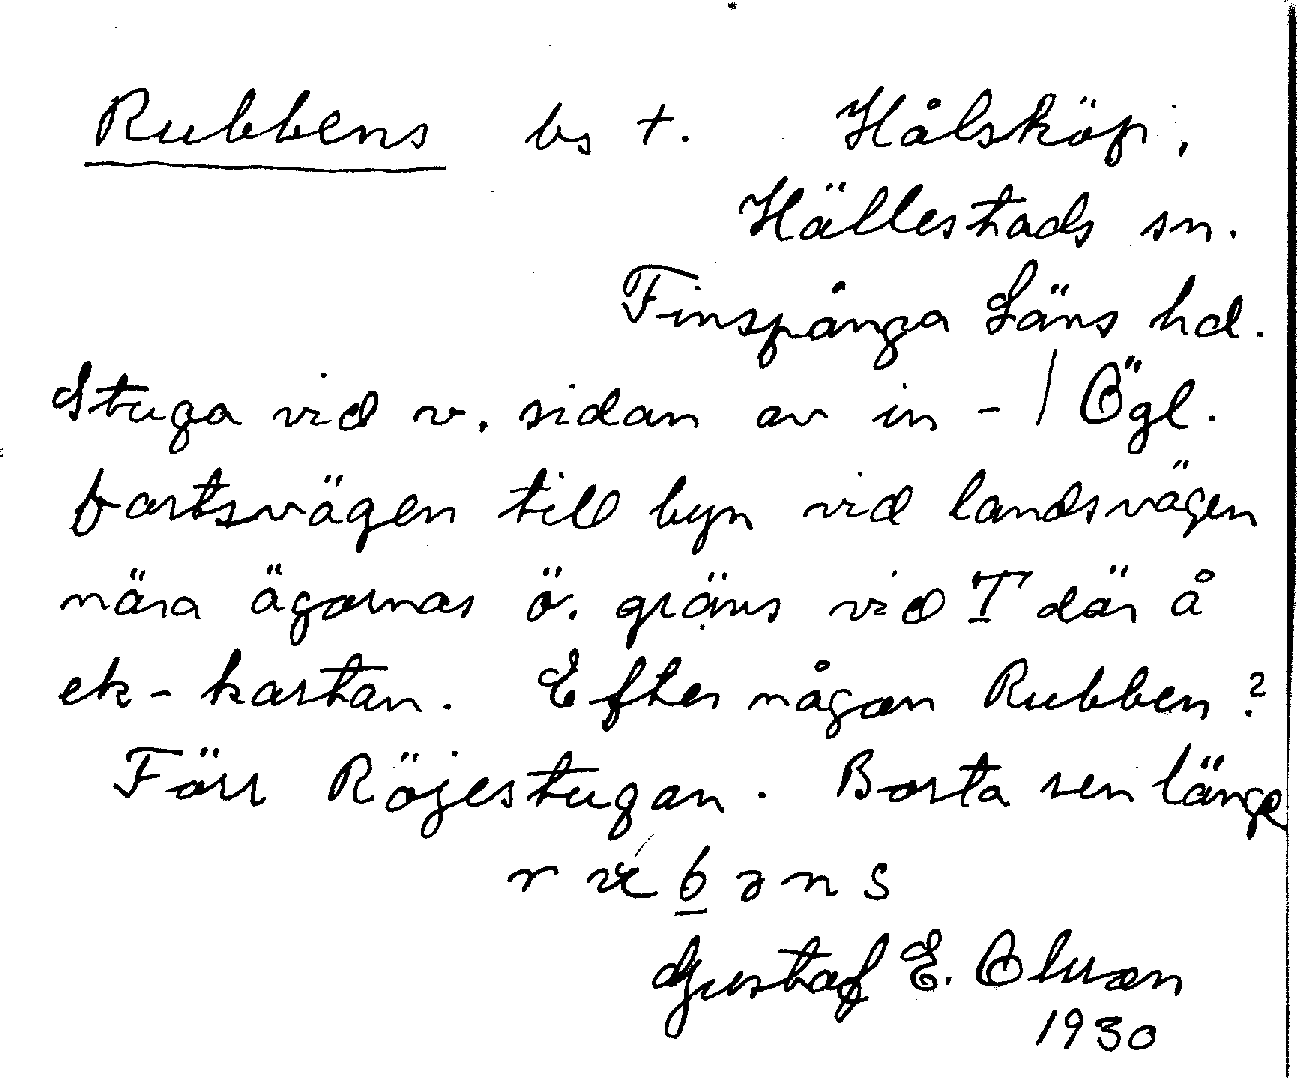 Rubbens bs †. Hålsköp,
Hällestads sn.
Finspånga Läns hd.
Stuga vid v. sidan av in - / Ögl.
fartsvägen till byn vid landsvägen
nära ägornas ö. gräns vid T där å
ek-kartan. Efter någon Rubben?
Förr Röjestugan. Borta sen länge
Gustaf E.
1930